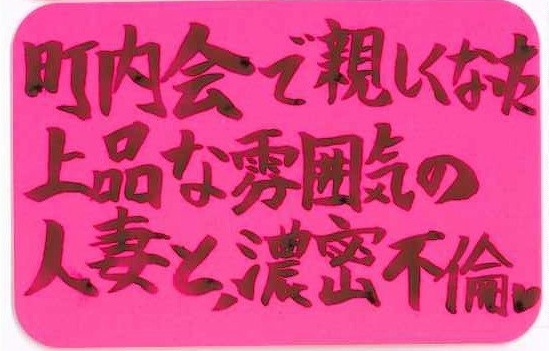 町内会で親しくなった
上品な雰囲気の
人妻と、濃密不倫♥